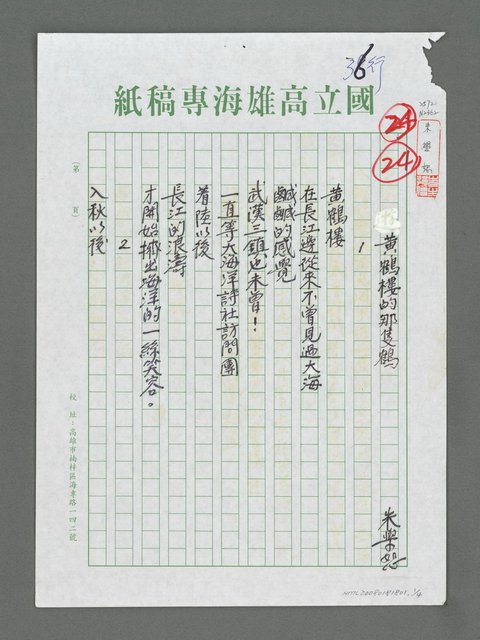 36行
國立高雄海專稿紙
24
24
朱學恕
黃鶴樓的那隻鶴
朱學恕
1
黃鶴樓
在長江邊從來不曾見過大海
鹹鹹的感覺
武漢三鎮也未曾！
一直等大海洋詩社訪問團
着陸以後
長江的浪濤
才開始擠出海洋的一絲笑容。
2
入秋以後
（第 頁）
校址：高雄市楠梓區海專路一四二號
NMTL20080181801, 1/4